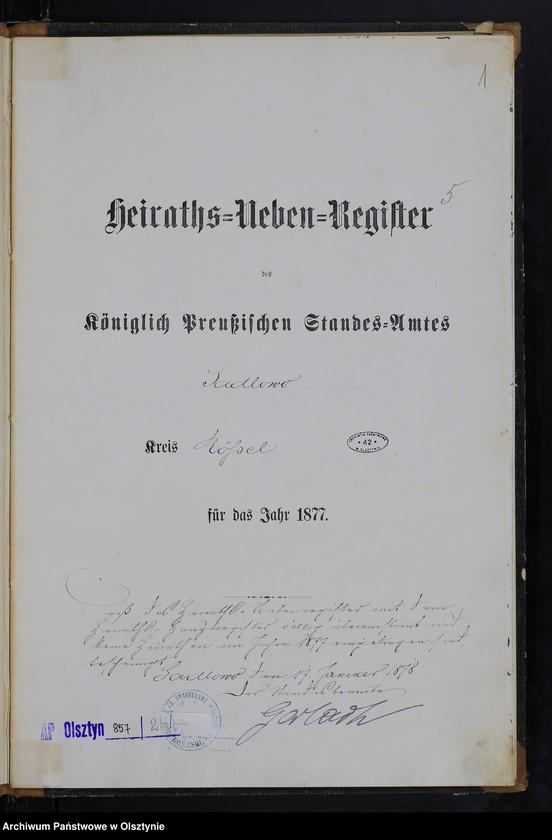 1
5
Heiraths=Neben=Register
des
Königlich Preußischen Standes=Amtes
Kreis Rößel
42
für das Jahr 1877.
Daß das Heiraths-Nebenregister mit dem
Heiraths-Hauptregister völlig übereinstimmt und
keine Heirathen im Jahre 1877 eingetragen sind
bescheinigt
den 17. Januar 1878
Der Standesbeamte
Gerlach
AP Olsztyn 857 2
Archiwum Państwowe w Olsztynie